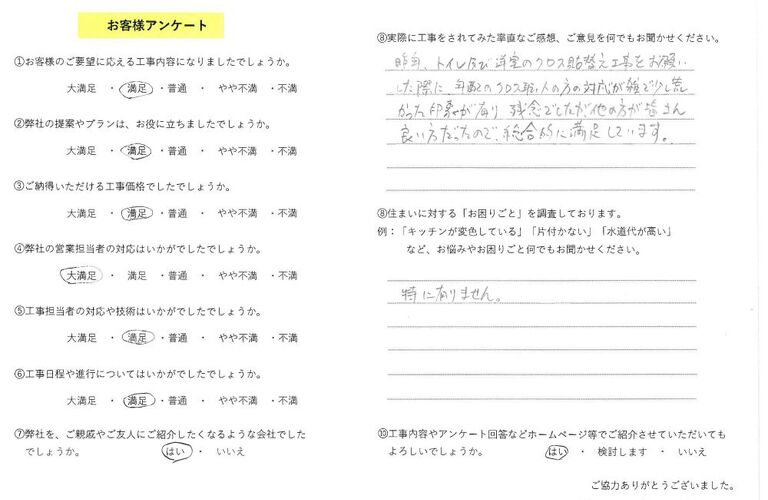 お客様アンケート
①お客様のご要望に応える工事内容になりましたでしょうか。
大満足 ・ 満足 ・普通 ・ やや不満 ・不満
②弊社の提案やプランは、お役に立ちましたでしょうか。
大満足 ・ 満足 ・普通 ・ やや不満 ・不満
③ご納得いただける工事価格でしたでしょうか。
大満足 ・ 満足 ・普通 ・ やや不満 ・不満
④弊社の営業担当者の対応はいかがでしたでしょうか。
大満足 ・ 満足 ・ 普通 ・ やや不満 ・不満
⑤工事担当者の対応や技術はいかがでしたでしょうか。
大満足 ・ 満足 ・普通 ・ やや不満 ・不満
⑥工事日程や進行についてはいかがでしたでしょうか。
大満足 ・ 満足 ・普通 ・ やや不満 ・不満
⑦弊社を、ご親戚やご友人にご紹介したくなるような会社でした
でしょうか。 はい ・ いいえ
⑧実際に工事をされてみた率直なご感想、ご意見を何でもお聞かせください。
昨年、トイレ及び洋室のクロス貼替え工事をお願い
した際に、年配のクロス職人の方の対応が雑で少し荒
かった印象が有り 残念でしたが他の方が皆さん
良い方だったので、総合的に満足しています。
⑨住まいに対する「お困りごと」を調査しております。
例：「キッチンが変色している」「片付かない」「水道代が高い」
など、お悩みやお困りごと何でもお聞かせください。
特に有りません。
⑩工事内容やアンケート回答などホームページ等でご紹介させていただいても
よろしいでしょうか。 はい ・ 検討します ・ いいえ
ご協力ありがとうございました。